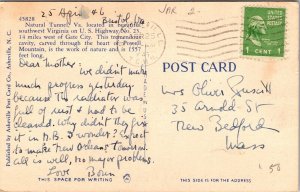 25 Apr 46
Bristol Va.
43828
Natural Tunnel, Va. located in beautiful
southwest Virginia on U. S. Highway No. 23,
14 miles west of Gate City. This tremendous
cavity, carved through the heart of Powell
Mountain, is the work of nature and is 1557
feet long.
Dear Mother:
We didn't make
much progress yesterday
because the radiator was
full of rust & had to be
cleaned. Why didn't they fix
it in N.B. I wonder? Expect
to make New Orleans tomorrow
all is well, no major problems.
Love
THIS SPACE FOR WRITING
Published by Asheville Post Card Co., Asheville, N. C.
APR 2
1 CENT 1
POST CARD
Mrs Oliver
35 Arnold St
New Bedford
Mass
THIS SIDE IS FOR THE ADDRESS